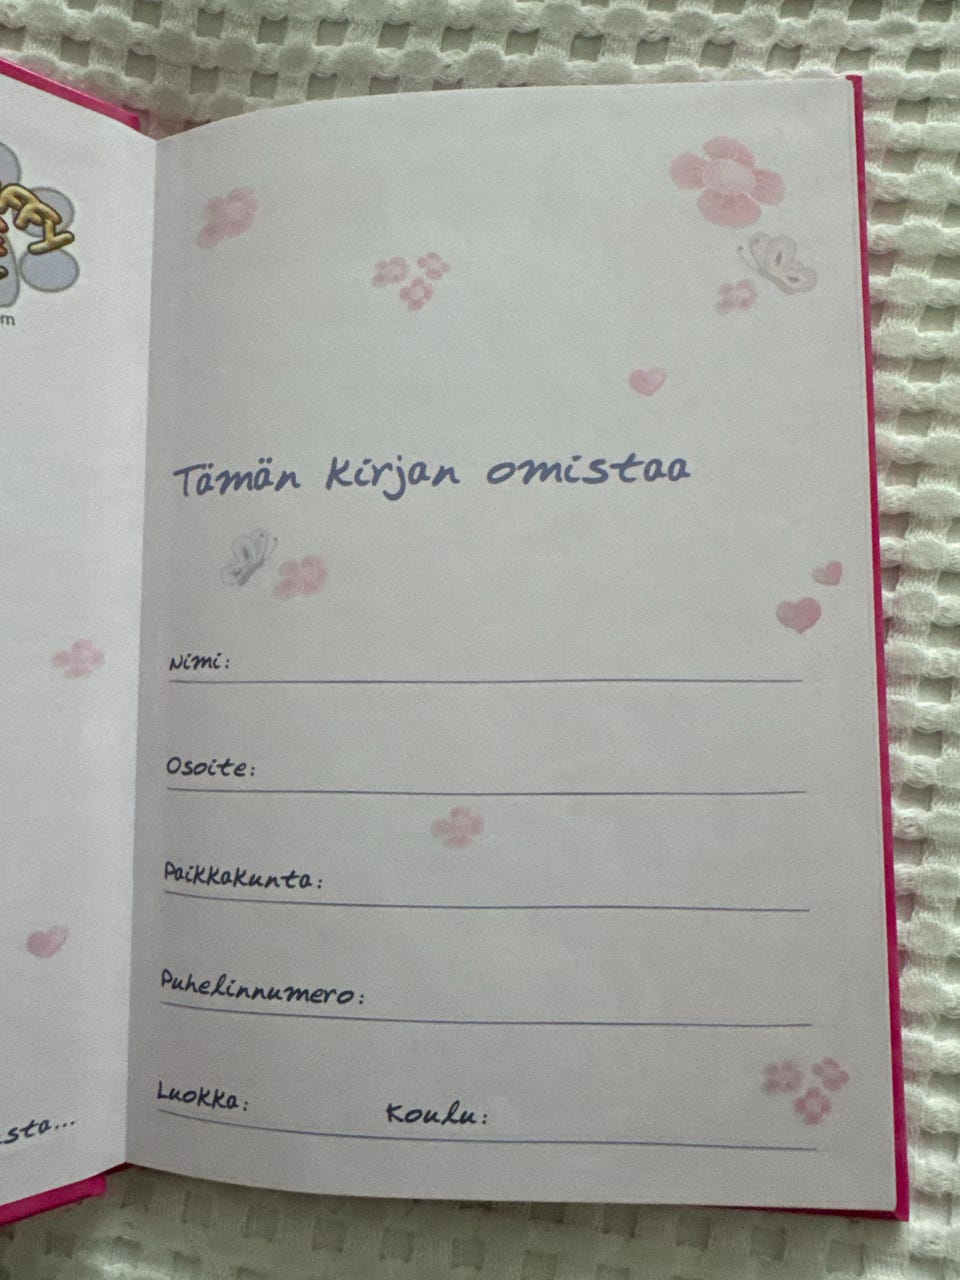 Tämän kirjan omistaa
Nimi:
Osoite:
Paikkakunta:
Puhelinnumero:
Luokka: Koulu: